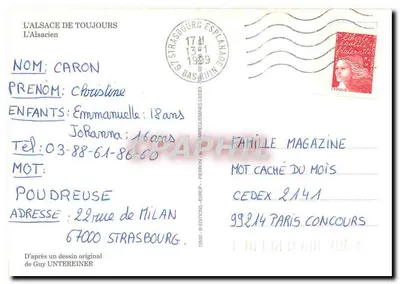 L'ALSACE DE TOUJOURS
L'Alsacien
67 STRASBOURG ESPLANADE
17 H
13-1
1999
BAS-RHIN
liberté
égalité
fraternité
NOM: CARON
PRENOM: Christine
ENFANTS: Emmanuelle: 18ans
Johanna: 16ans
Tél: 03-88-61-86-60
MOT:
POUDREUSE
ADRESSE: 22 rue de MILAN
67000 STRASBOURG.
FAMILLE MAGAZINE
MOT CACHÉ DU MOIS
CEDEX 2141
99214 PARIS CONCOURS
D'après un dessin original
de Guy UNTEREINER